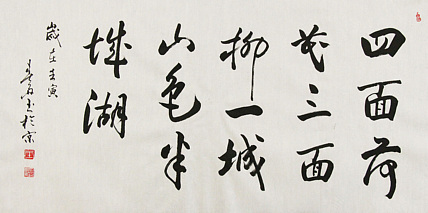 四面荷
花三面
柳一城
山色半
城湖
歲在壬寅
於京